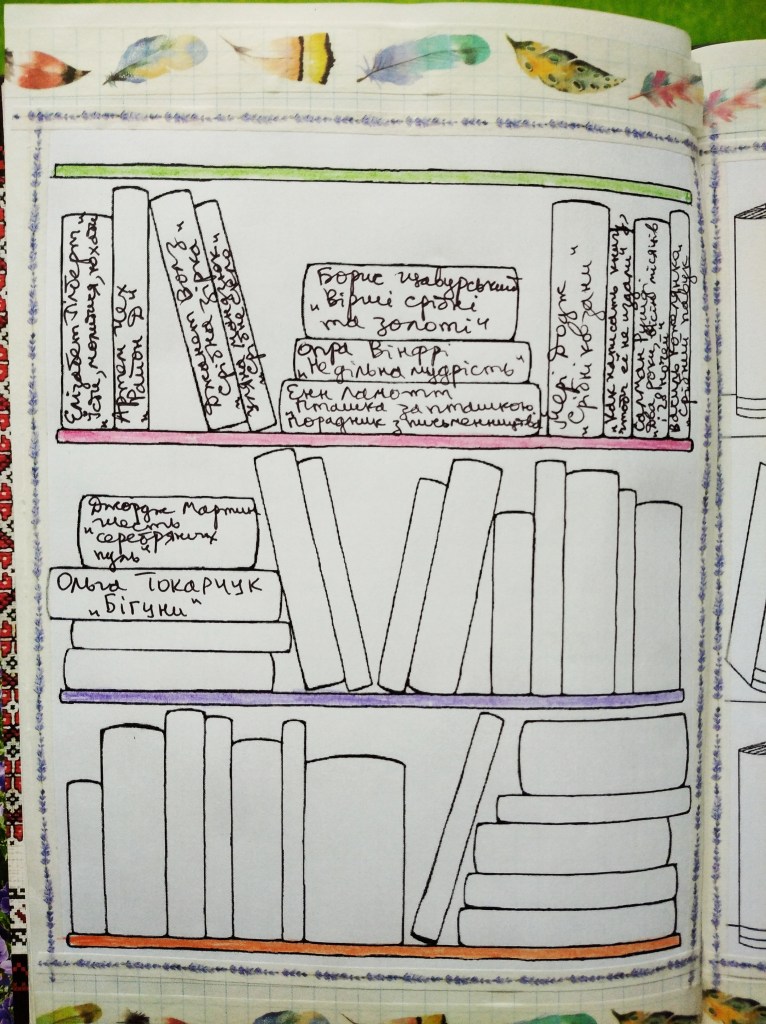 Елізабет Гілберт
"Їсти, молитися, кохати"
Артем Чех
"Район Д"
Джанет Волз
"Срібна зірка"
"Срібне
Борис Щавурський
"Вірші срібні
та золоті"
Опра Вінфрі
"Недільна мудрість"
Енн Ламотт
"Пташка за пташкою
Порадник з письменництва
Мері Додж
"Срібні ковзани"
"Как написать книгу,
чтобы ее не издали"
Салман Рушді
"Два роки, вісім місяців
і 28 ночей"
Василь
"Срібний павук"
Джордж Мартин
"Шесть
серебряных
пуль"
Ольга Токарчук
"Бігуни"